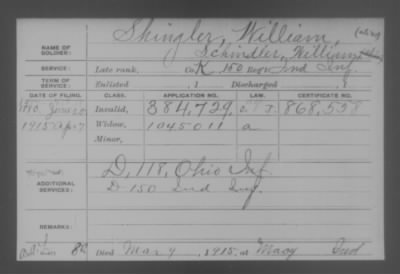 Shingler, William,
(alias)
NAME OF SOLDIER: Schindler, William
SERVICE: Late rank, Co. K, 150 Reg't Ind Inf.
TERM OF SERVICE: Enlisted , 1 Discharged , 1
DATE OF FILING. CLASS. APPLICATION NO. LAW. CERTIFICATE NO.
1880, June 20 Invalid, 384,729, 868,558
1915 Widow, 1045011 a
Minor,
ADDITIONAL SERVICES: D, 118, Ohio Inf.
D 150 Ind Inf.
REMARKS:
Died May 4, 1915, at Macy Ind